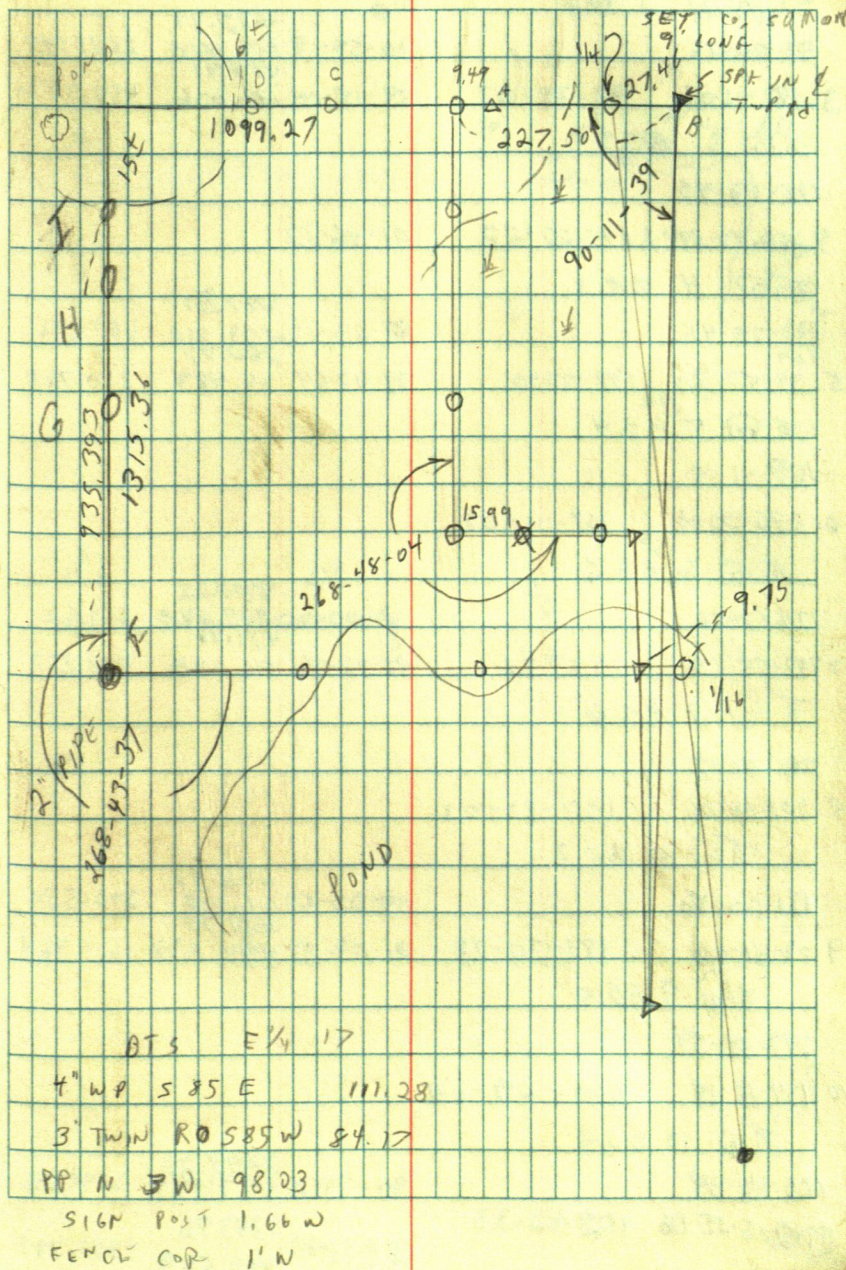 SET CO. SUMON
9' LONG
1/4
27.41
SPK IN ℄
TWP RD
POND
6±
D
C
9.49
A
B
1099.27
227.50
15±
90-11-39
I
H
G
935.393
1315.31
15.99
268-48-04
9.75
1/16
2" PIPE
268-43-37
POND
BTS E 1/4 17
4" WP S 85 E 111.28
3" TWIN RO S85W 84.17
PP N 3W 98.03
SIGN POST 1.66 W
FENCE COR 1' N